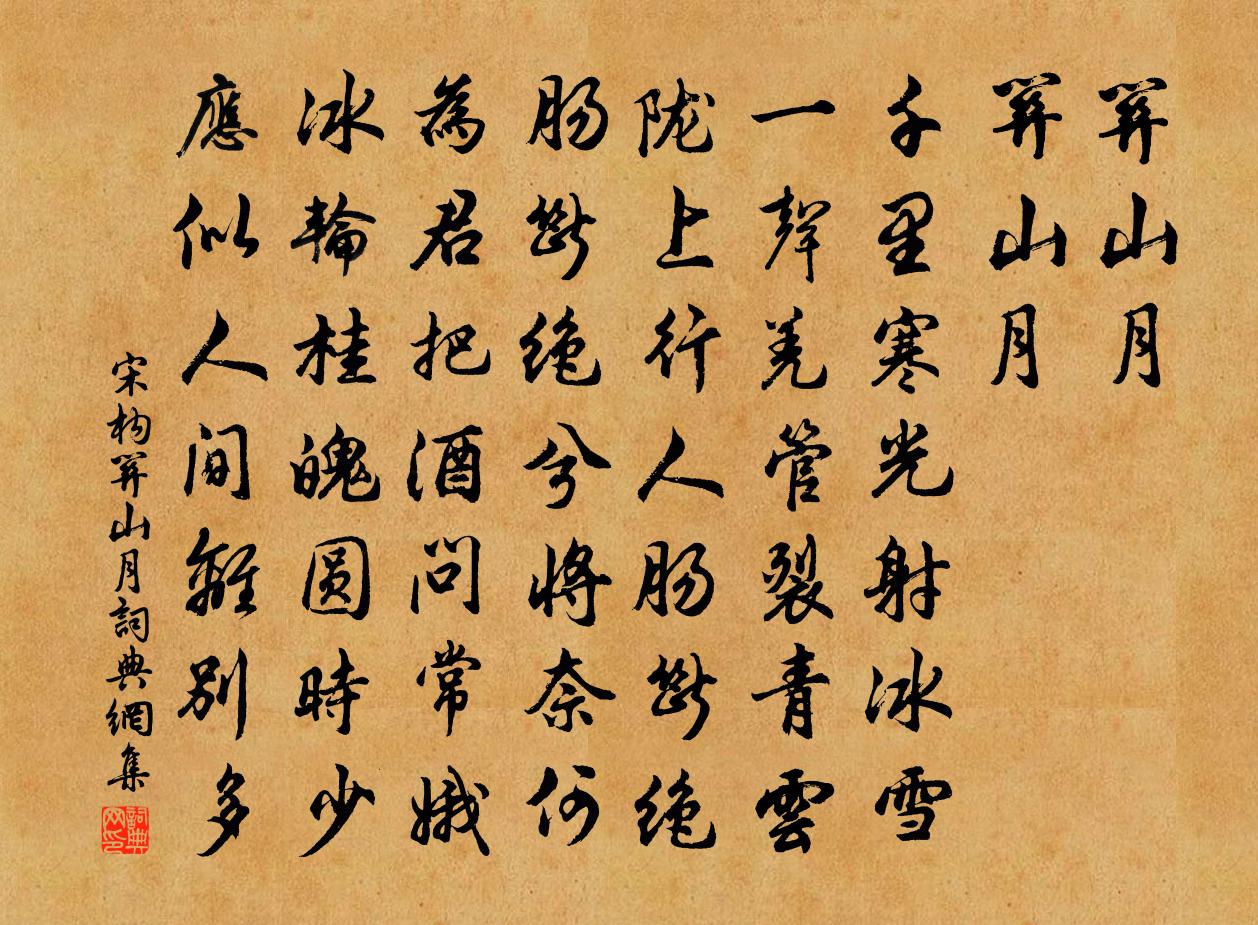 關山月
關山月
千里寒光射冰雪
一聲羌管裂青雲
陇上行人肠斷绝
肠斷绝兮將奈何
為君把酒問常娥
冰輪桂魄圆時少
應似人间離別多
宋构關山月詞典網集
詞典网印